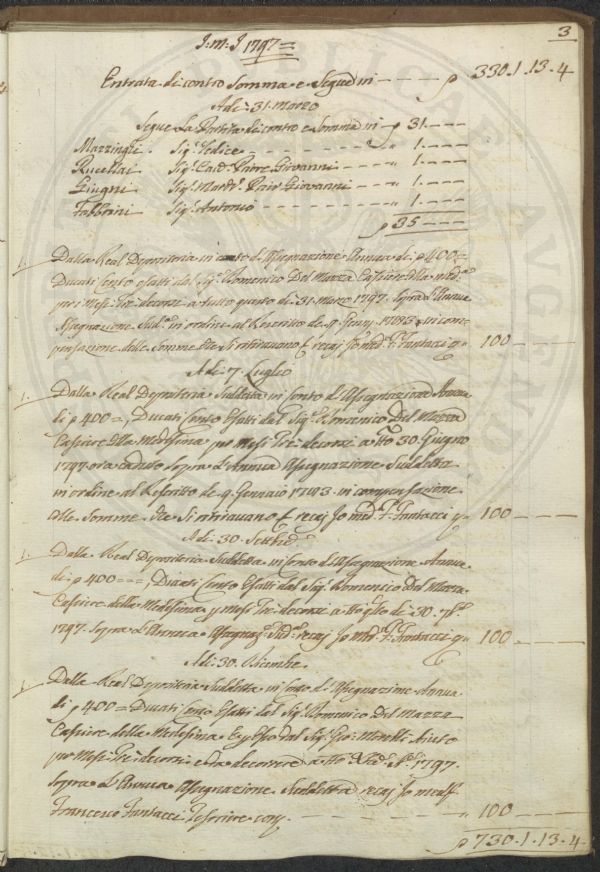 3
J: M: J 1797 =
Entrata di contro Somma e Segue in - - - - p 330.1.13.4
Adi: 31. Marzo
Segue La Partita di contro e Somma in p 31. - - -
Mazzinghi Sig:r Felice - - - - - - - - " 1. - - -
Rucellai Sig:r Cav:r Priore Giovanni - - - " 1. - - -
Giugni Sig:r March: Giovanni - - - " 1. - - -
Fabbrini Sig:r Antonio - - - - - - " 1. - - -
p 35 - - -
1. Dalla Real Depositeria in conto d'Assegnazione Annua di p 400 =
Ducati Cento esatti dal Sig:r Domenico Del Mazza Cassiere della med:a
per i Mesi Tre decorsi a tutto questo dì 31. Marzo 1797. Sopra l'Annua
Assegnazione Sud:a in ordine al Rescritto de 9. Genn: 1793 in com-
pensazione delle Somme che si ritiravano recai Io med: F: Fantacci 100 - - -
Adi: 7. Luglio
1. Dalla Real Depositeria Suddetta in Conto d'Assegnazione Annua
di p 400 =, Ducati Cento Esatti dal Sig:r Domenico Del Mazza
Cassiere della Medesima per Mesi Tre decorsi a tto 30. Giugno
1797. ora caduto sopra l'Annua Assegnazione Suddetta
in ordine al Rescritto de 9. Gennaio 1793. in compensazione
delle Somme che Si ritiravano recai Io med: F: Fantacci 100 - - -
Adi: 30. Settbe
1. Dalla Real Depositeria Suddetta in Conto d'Assegnazione Annua
di p 400 = = =, Ducati Cento Esatti dal Sig:r Domenico Del Mazza
Cassiere della Medesima p mesi Tre decorsi a tto q:sto dì 30. 7bre
1797. Sopra l'Annua Assegnaz:e Sud:a recai Io Med: F: Fantacci 100 - - -
Adi: 30. Dicembe
1. Dalla Real Depositeria Suddetta in Conto d'Assegnazione Annua
di p 400 = Ducati Cento Esatti dal Sig:r Domenico Del Mazza
Cassiere della Medesima dal Sig:r Aiuto
per Mesi Tre decorsi e da decorrere a tto 1797.
Sopra l'Annua Assegnazione Suddetta recai Io med:
Francesco Fantacci - - - - " 100 - - -
p 730.1.13.4